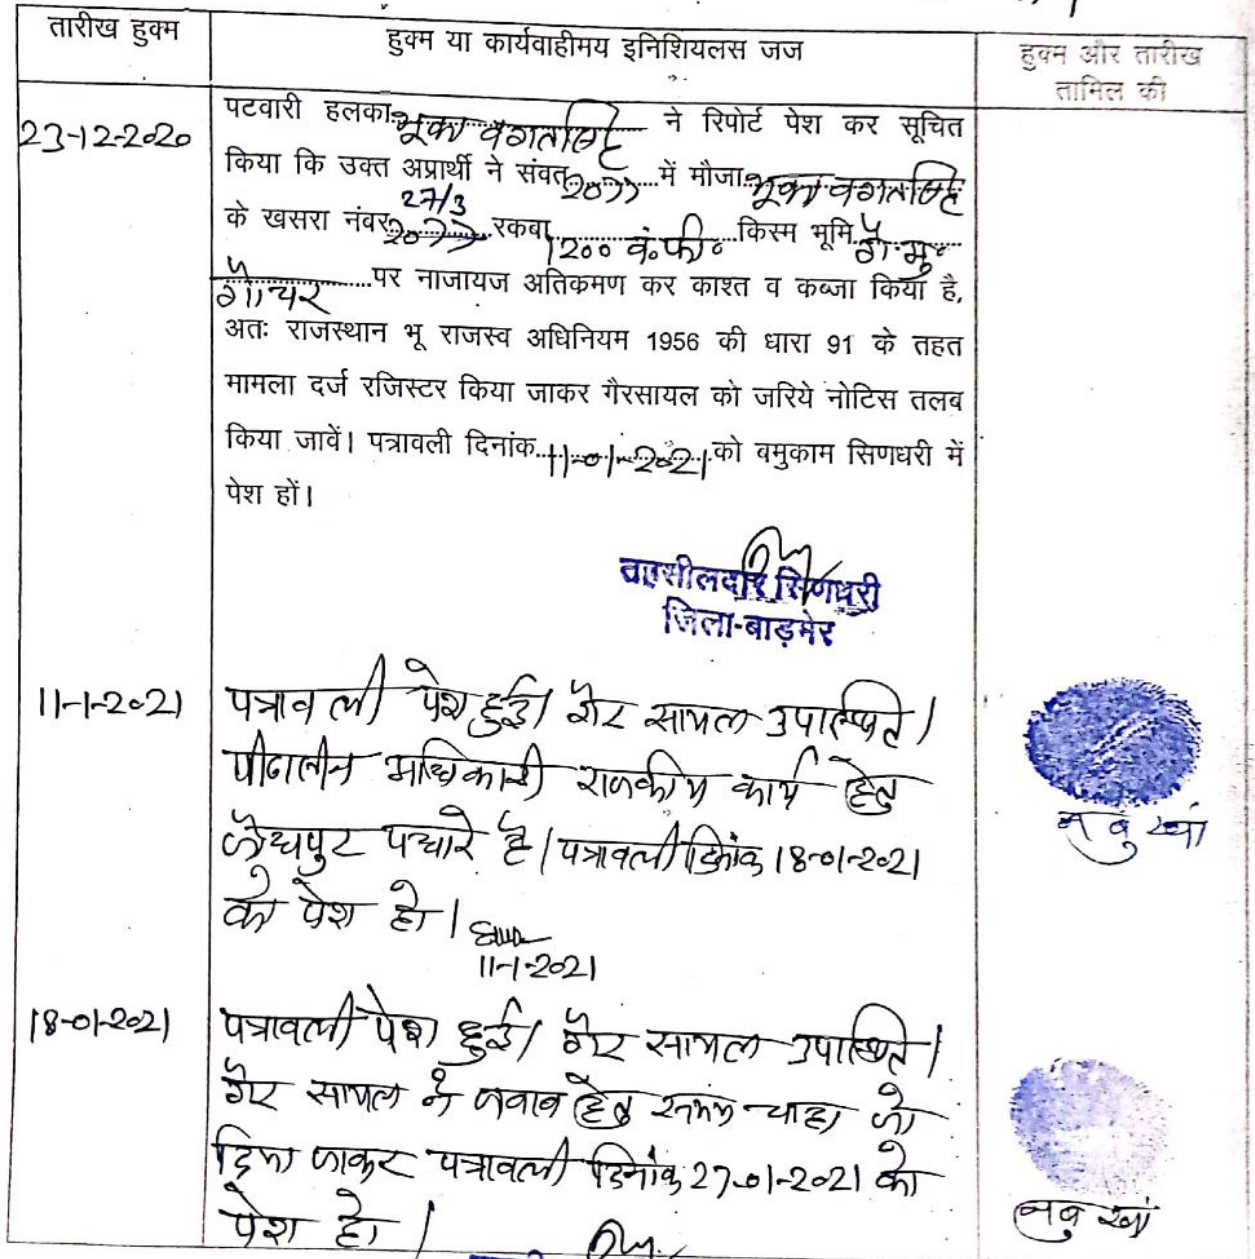 तारीख हुक्म
हुक्म या कार्यवाहीमय इनिशियलस जज
हुक्म और तारीख
तामिल की
23-12-2020
पटवारी हलका भूका भगतसिंह ने रिपोर्ट पेश कर सूचित
किया कि उक्त अप्रार्थी ने संवत 2077 में मौजा भूका भगतसिंह
27/3
के खसरा नंबर 2077 रकबा 1200 व.फी. किस्म भूमि गै.मु.
गौचर पर नाजायज अतिकमण कर काश्त व कब्जा किया है,
अतः राजस्थान भू राजस्व अधिनियम 1956 की धारा 91 के तहत
मामला दर्ज रजिस्टर किया जाकर गैरसायल को जरिये नोटिस तलब
किया जावें। पत्रावली दिनांक 11-01-2021 को बमुकाम सिणधरी में
पेश हों।
तहसीलदार सिणधरी
जिला-बाड़मेर
11-1-2021
पत्रावली पेश हुई। गैर सायल उपस्थित।
पीठासीन अधिकारी राजकीय कार्य हेतु
जोधपुर पधारे है। पत्रावली दिनांक 18-01-2021
को पेश हो।
11-1-2021
नबु खां
18-01-2021
पत्रावली पेश हुई। गैर सायल उपस्थित।
गैर सायल ने जवाब हेतु समय चाहा जो
दिया जाकर पत्रावली दिनांक 27-01-2021 को
पेश हो।
नबु खां